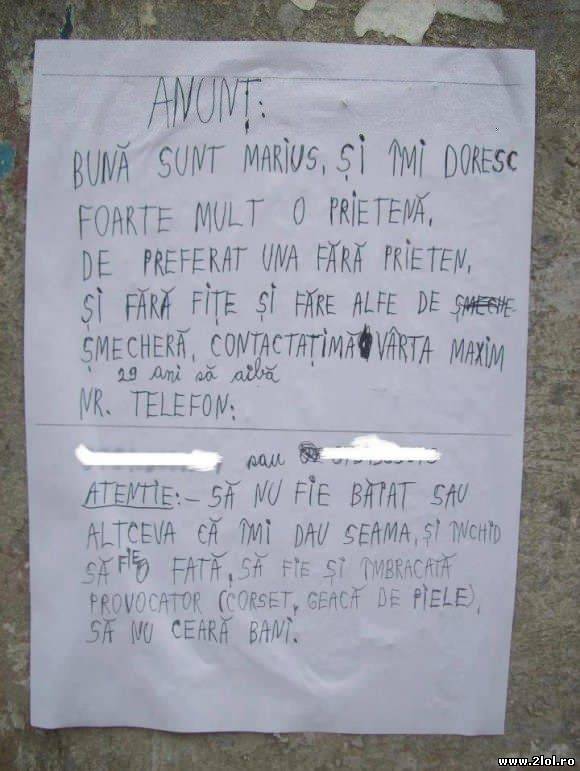 ANUNȚ:
BUNĂ SUNT MARIUS, ȘI ÎMI DORESC
FOARTE MULT O PRIETENĂ,
DE PREFERAT UNA FĂRĂ PRIETEN,
ȘI FĂRĂ FIȚE ȘI FĂRE ALFE DE ȘMECHE
ȘMECHERĂ, CONTACTAȚIMĂ VÂRTA MAXIM
29 ani să aibă
NR. TELEFON:
sau
ATENTIE:- SĂ NU FIE BĂIAT SAU
ALTCEVA CĂ ÎMI DAU SEAMA, ȘI ÎNCHID
SĂ FIE O FATĂ, SĂ FIE ȘI ÎMBRACATĂ
PROVOCATOR (CORSET, GEACĂ DE PIELE),
SĂ NU CEARĂ BANI.
www.2lol.ro